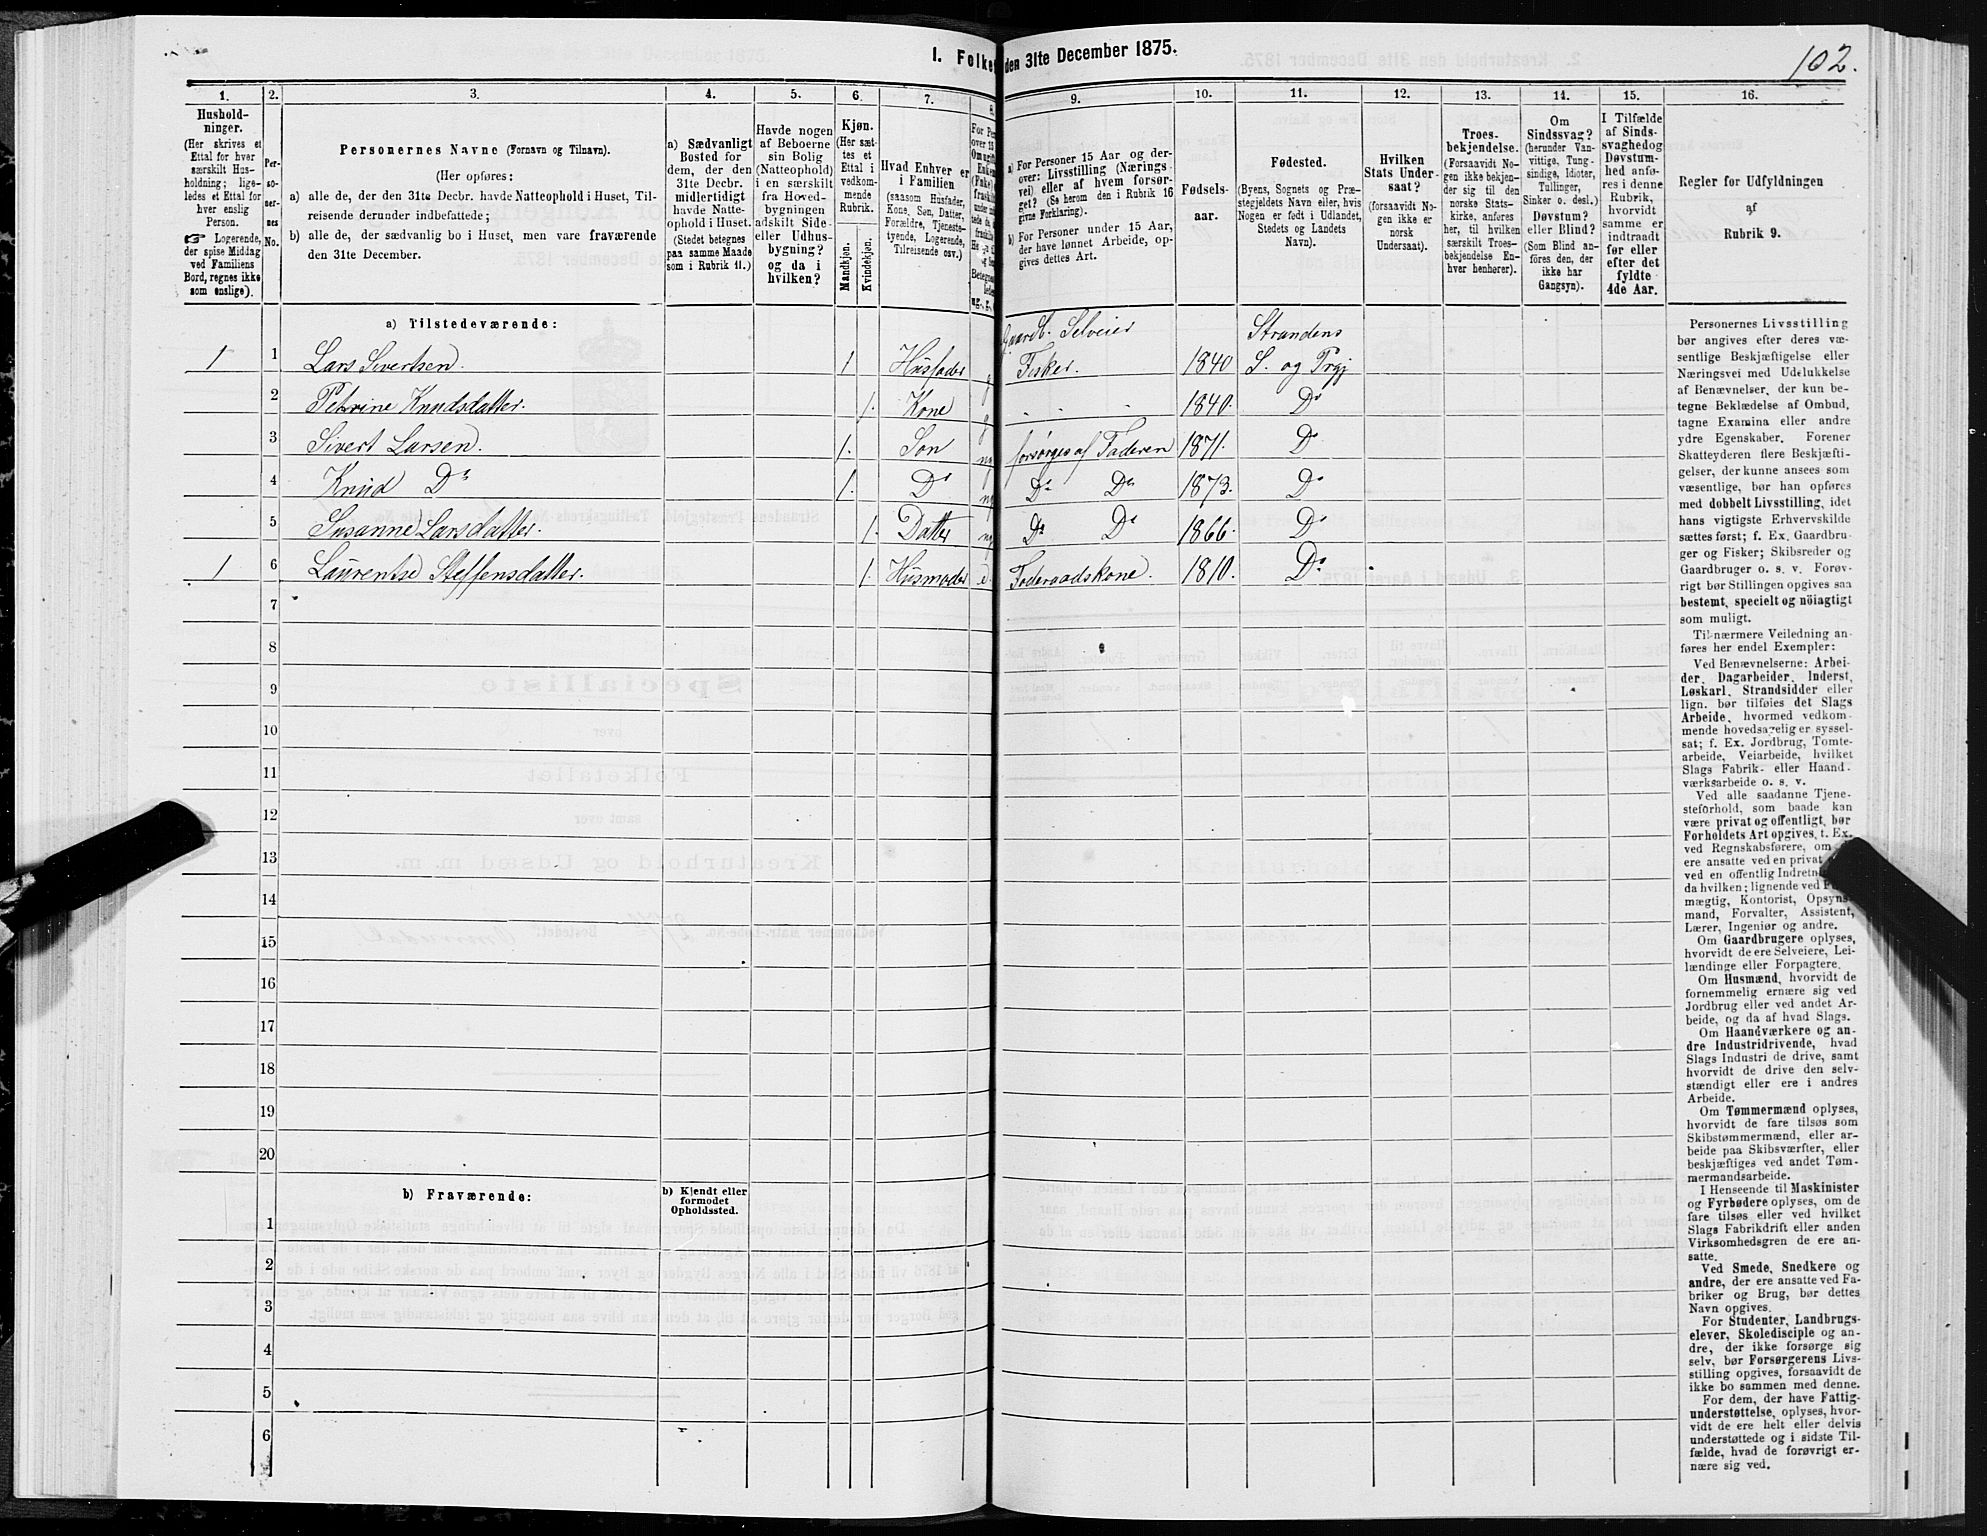 I. Folket
den 31te December 1875.
102.
1.
2.
3.
4.
5.
6.
7.
8.
9.
10.
11.
12.
13.
14.
15.
16.
Hushold-
ninger.
(Her skrives et
Ettal for hver
særskilt Hus-
holdning; lige-
ledes et Ettal for
hver enslig
Person.
☞ Logerende,
der spise Middag
ved Familiens
Bord, regnes ikke
som enslige).
Per-
so-
ner-
nes
No.
Personernes Navne (Fornavn og Tilnavn).
(Her opføres:
a) alle de, der den 31te Decbr. havde Natteophold i Huset, Til-
reisende derunder indbefattede;
b) alle de, der sædvanlig bo i Huset, men vare fraværende
den 31te December.
a) Sædvanligt
Bosted for
dem, der den
31te Decbr.
midlertidigt
havde Natte-
ophold i Huset.
(Stedet betegnes
paa samme Maade
som i Rubrik 11.)
Havde nogen
af Beboerne
sin Bolig
(Natteophold)
i en særskilt
fra Hoved-
bygningen
adskilt Side-
eller Udhus-
bygning?
og da i
hvilken?
Kjøn.
(Her sæt-
tes et
Ettal i
vedkom-
mende
Rubrik.
Mandkjøn.
Kvindekjøn.
Hvad Enhver er
i Familien
(saasom Husfader,
Kone, Søn, Datter,
Forældre, Tjeneste-
tyende, Logerende,
Tilreisende osv.)
a) For Personer 15 Aar og der-
over: Livsstilling (Nærings-
vei) eller af hvem forsør-
get? (Se herom den i Rubrik 16
givne Forklaring).
b) For Personer under 15 Aar,
der have lønnet Arbeide, op-
gives dettes Art.
Fødsels-
aar.
Fødested.
(Byens, Sognets og Præ-
stegjeldets Navn eller, hvis
Nogen er født i Udlandet,
Stedets og Landets
Navn).
Hvilken
Stats Under-
saat?
(forsaavidt No-
gen ikke er
norsk
Undersaat).
Troes-
bekjendelse.
(Forsaavidt No-
gen ikke bekjen-
der sig til den
norske Stats-
kirke, anføres
her, til hvilken
særskilt Troes-
bekjendelse En-
hver henhører).
Om
Sindssvag?
(herunder Van-
vittige, Tung-
sindige, Idioter,
Tullinger,
Sinker o. desl.)
Døvstum?
eller Blind?
(Som Blind an-
føres den, der
ikke har
Gangsyn).
I Tilfælde
af Sinds-
svaghed og
Døvstum-
hed anfø-
res i denne
Rubrik,
hvorvidt
samme er
indtraadt
før eller
efter det
fyldte
4de Aar.
Regler for Udfyldningen
af
Rubrik 9.
a) Tilstedeværende:
Gaardb. Selveier Strandens
1 1 Lars Sivertsen. 1 Husfader g Fisker. 1840 S. og Prgj
2 Petrine Knudsdatter. 1. Kone g 1840. Do
3 Sivert Larsen. 1. Søn ug forsørges af Faderen 1871. Do
4 Knud Do 1. Do ug Do Do 1873. Do
5 Susanne Larsdatter. 1. Datter ug Do Do 1866. Do
1 6 Laurentse Steffensdatter. 1. Husmoder e. Foderaadskone. 1810. Do
7
8
9
10
11
12
13
14
15
16
17
18
19
20
b) Fraværende:
b) Kjendt eller
formodet
Opholdssted.
1
2
3
4
5
6
Personernes Livsstilling
bør angives efter deres væ-
sentlige Beskjæftigelse eller
Næringsvei med Udelukkelse
af Benævnelser, der kun be-
tegne Beklædelse af Ombud,
tagne Examina eller andre
ydre Egenskaber. Forener
Skatteyderen flere Beskjæfti-
gelser, der kunne ansees som
væsentlige, bør han opføres
med dobbelt Livsstilling, idet
hans vigtigste Erhvervskilde
sættes først; f. Ex. Gaardbru-
ger og Fisker; Skibsreder og
Gaardbruger o. s. v. Forøv-
rigt bør Stillingen opgives saa
bestemt, specielt og nöiagtigt
som muligt.
Til nærmere Veiledning an-
føres her endel Exempler:
Ved Benævnelserne: Arbei-
der, Dagarbeider, Inderst,
Løskarl, Strandsidder eller
lign. bør tilføies det Slags
Arbeide, hvormed vedkom-
mende hovedsagelig er syssel-
sat; f. Ex. Jordbrug, Tomte-
arbeide, Veiarbeide, hvilket
Slags Fabrik- eller Haand-
værksarbeide o. s. v.
Ved alle saadanne Tjene-
steforhold, som baade kan
være privat og offentligt, bør
Forholdets Art opgives, t. Ex.
ved Regnskabsførere, om
ere ansatte ved en privat
ved en offentlig Indretn
da hvilken; lignende ved
mægtig, Kontorist, Opsyns-
mand, Forvalter, Assistent,
Lærer, Ingeniør og andre.
Om Gaardbrugere oplyses,
hvorvidt de ere Selveiere, Lei-
lændinge eller Forpagtere.
Om Husmænd, hvorvidt de
fornemmelig ernære sig ved
Jordbrug eller ved andet Ar-
beide, og da af hvad Slags.
Om Haandværkere og an-
dre Industridrivende, hvad
Slags Industri de drive, samt
hvorvidt de drive den selv-
stændigt eller ere i andres
Arbeide.
Om Tømmermænd oplyses,
hvorvidt de fare tilsøs som
Skibstømmermænd, eller ar-
beide paa Skibsværfter, eller
beskjæftiges ved andet Tøm-
mermandsarbeide.
I Henseende til Maskinister
og Fyrbødere oplyses, om de
fare tilsøs eller ved hvilket
Slags Fabrikdrift eller anden
Virksomhedsgren de ere an-
satte.
Ved Smede, Snedkere og
andre, der ere ansatte ved Fa-
briker og Brug, bør dettes
Navn opgives.
For Studenter, Landbrugs-
elever, Skoledisciple og an-
dre, der ikke forsørge sig
selv, bør Forsørgerens Livs-
stilling opgives, forsaavidt de
ikke bo sammen med denne.
For dem, der have Fattig-
understøttelse, oplyses, hvor-
vidt de ere helt eller delvis
understøttede og i sidste Til-
fælde, hvad de forøvrigt er-
nære sig ved.